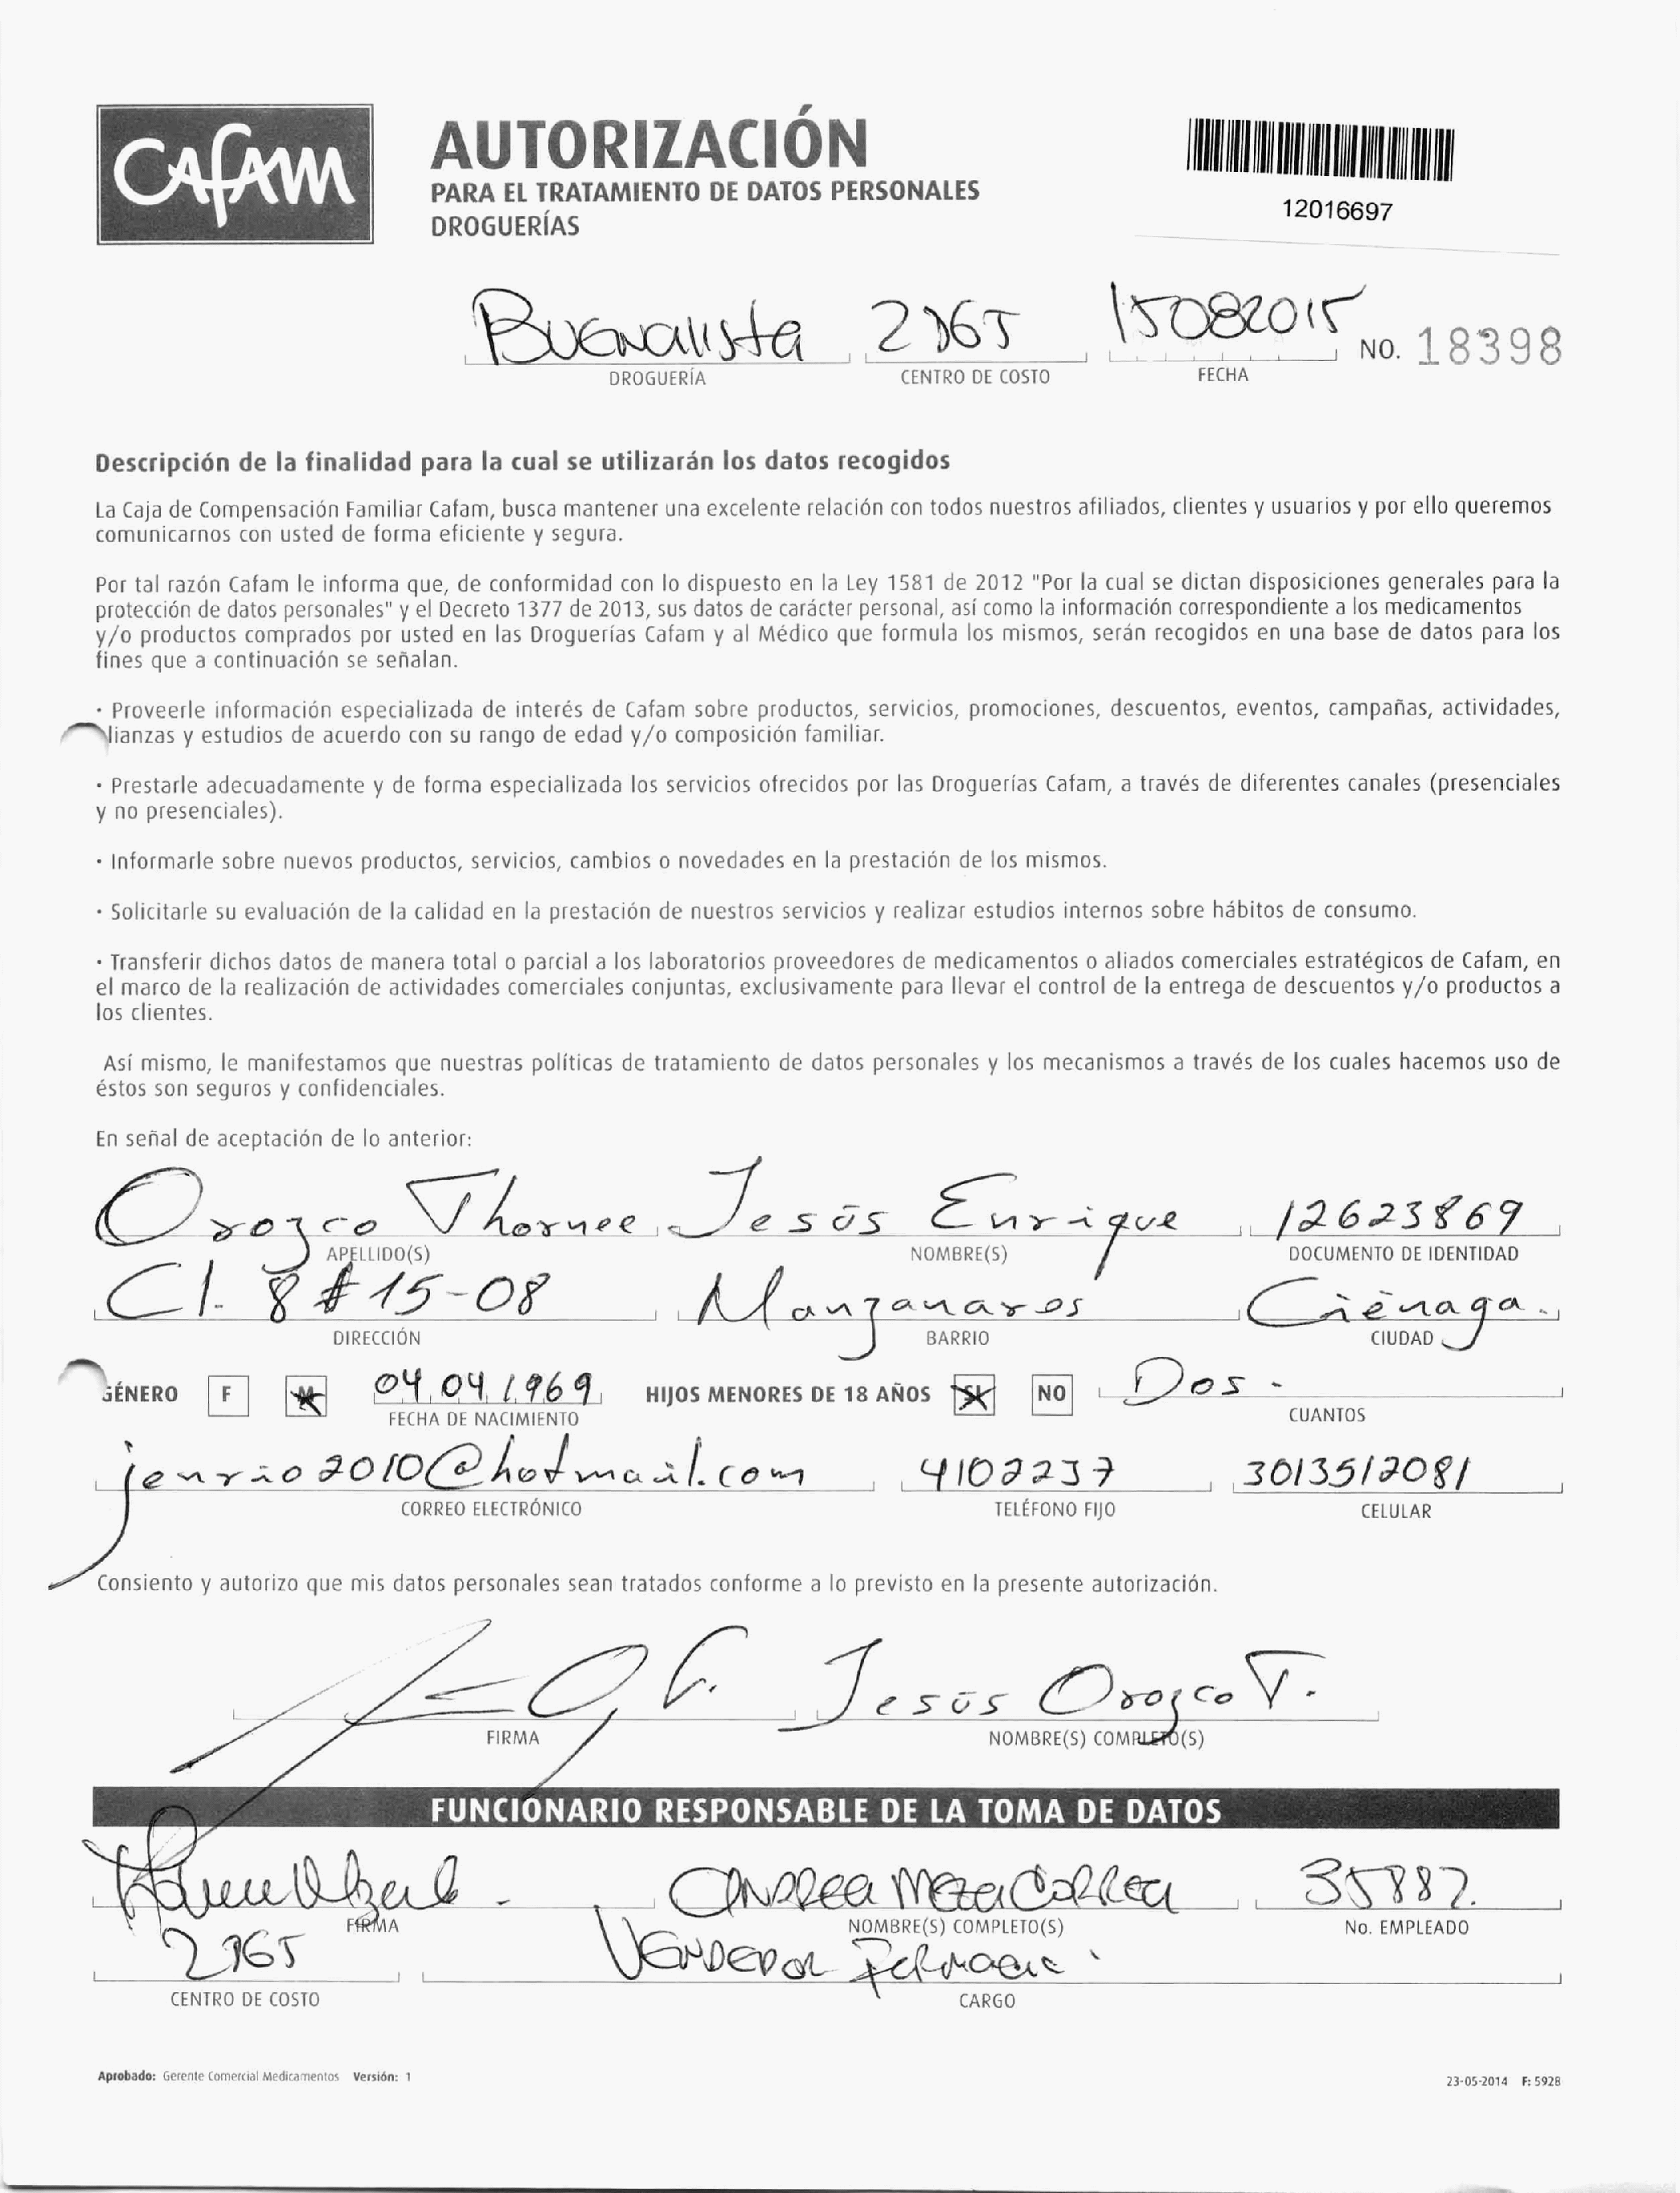 CAFAM
AUTORIZACIÓN
PARA EL TRATAMIENTO DE DATOS PERSONALES
DROGUERÍAS
12016697
Buenavista 15082015 NO. 18398
DROGUERÍA CENTRO DE COSTO FECHA
Descripción de la finalidad para la cual se utilizarán los datos recogidos
La Caja de Compensación Familiar Cafam, busca mantener una excelente relación con todos nuestros afiliados, clientes y usuarios y por ello queremos
comunicarnos con usted de forma eficiente y segura.
Por tal razón Cafam le informa que, de conformidad con lo dispuesto en la Ley 1581 de 2012 "Por la cual se dictan disposiciones generales para la
protección de datos personales" y el Decreto 1377 de 2013, sus datos de carácter personal, así como la información correspondiente a los medicamentos
y/o productos comprados por usted en las Droguerías Cafam y al Médico que formula los mismos, serán recogidos en una base de datos para los
fines que a continuación se señalan.
· Proveerle información especializada de interés de Cafam sobre productos, servicios, promociones, descuentos, eventos, campañas, actividades,
lianzas y estudios de acuerdo con su rango de edad y/o composición familiar.
· Prestarle adecuadamente y de forma especializada los servicios ofrecidos por las Droguerías Cafam, a través de diferentes canales (presenciales
y no presenciales).
· Informarle sobre nuevos productos, servicios, cambios o novedades en la prestación de los mismos.
· Solicitarle su evaluación de la calidad en la prestación de nuestros servicios y realizar estudios internos sobre hábitos de consumo.
· Transferir dichos datos de manera total o parcial a los laboratorios proveedores de medicamentos o aliados comerciales estratégicos de Cafam, en
el marco de la realización de actividades comerciales conjuntas, exclusivamente para llevar el control de la entrega de descuentos y/o productos a
los clientes.
Así mismo, le manifestamos que nuestras políticas de tratamiento de datos personales y los mecanismos a través de los cuales hacemos uso de
éstos son seguros y confidenciales.
En señal de aceptación de lo anterior:
Orozco Thornee Jesús Enrique 12623869
APELLIDO(S) NOMBRE(S) DOCUMENTO DE IDENTIDAD
Cl. 8 # 15-08 Manzanares Ciénaga.
DIRECCIÓN BARRIO CIUDAD
GÉNERO F M 04 04 1969 HIJOS MENORES DE 18 AÑOS SI NO Dos.
FECHA DE NACIMIENTO CUANTOS
jenrio2010@hotmail.com 4102237 3013512081
CORREO ELECTRÓNICO TELÉFONO FIJO CELULAR
Consiento y autorizo que mis datos personales sean tratados conforme a lo previsto en la presente autorización.
Jesús Orozco T.
FIRMA NOMBRE(S) COMPLETO(S)
FUNCIONARIO RESPONSABLE DE LA TOMA DE DATOS
Andrea Meza Correa 35882.
FIRMA NOMBRE(S) COMPLETO(S) No. EMPLEADO
Vendedor Farmacia.
CENTRO DE COSTO CARGO
Aprobado: Gerente Comercial Medicamentos Versión: 1
23-05-2014 F: 5928